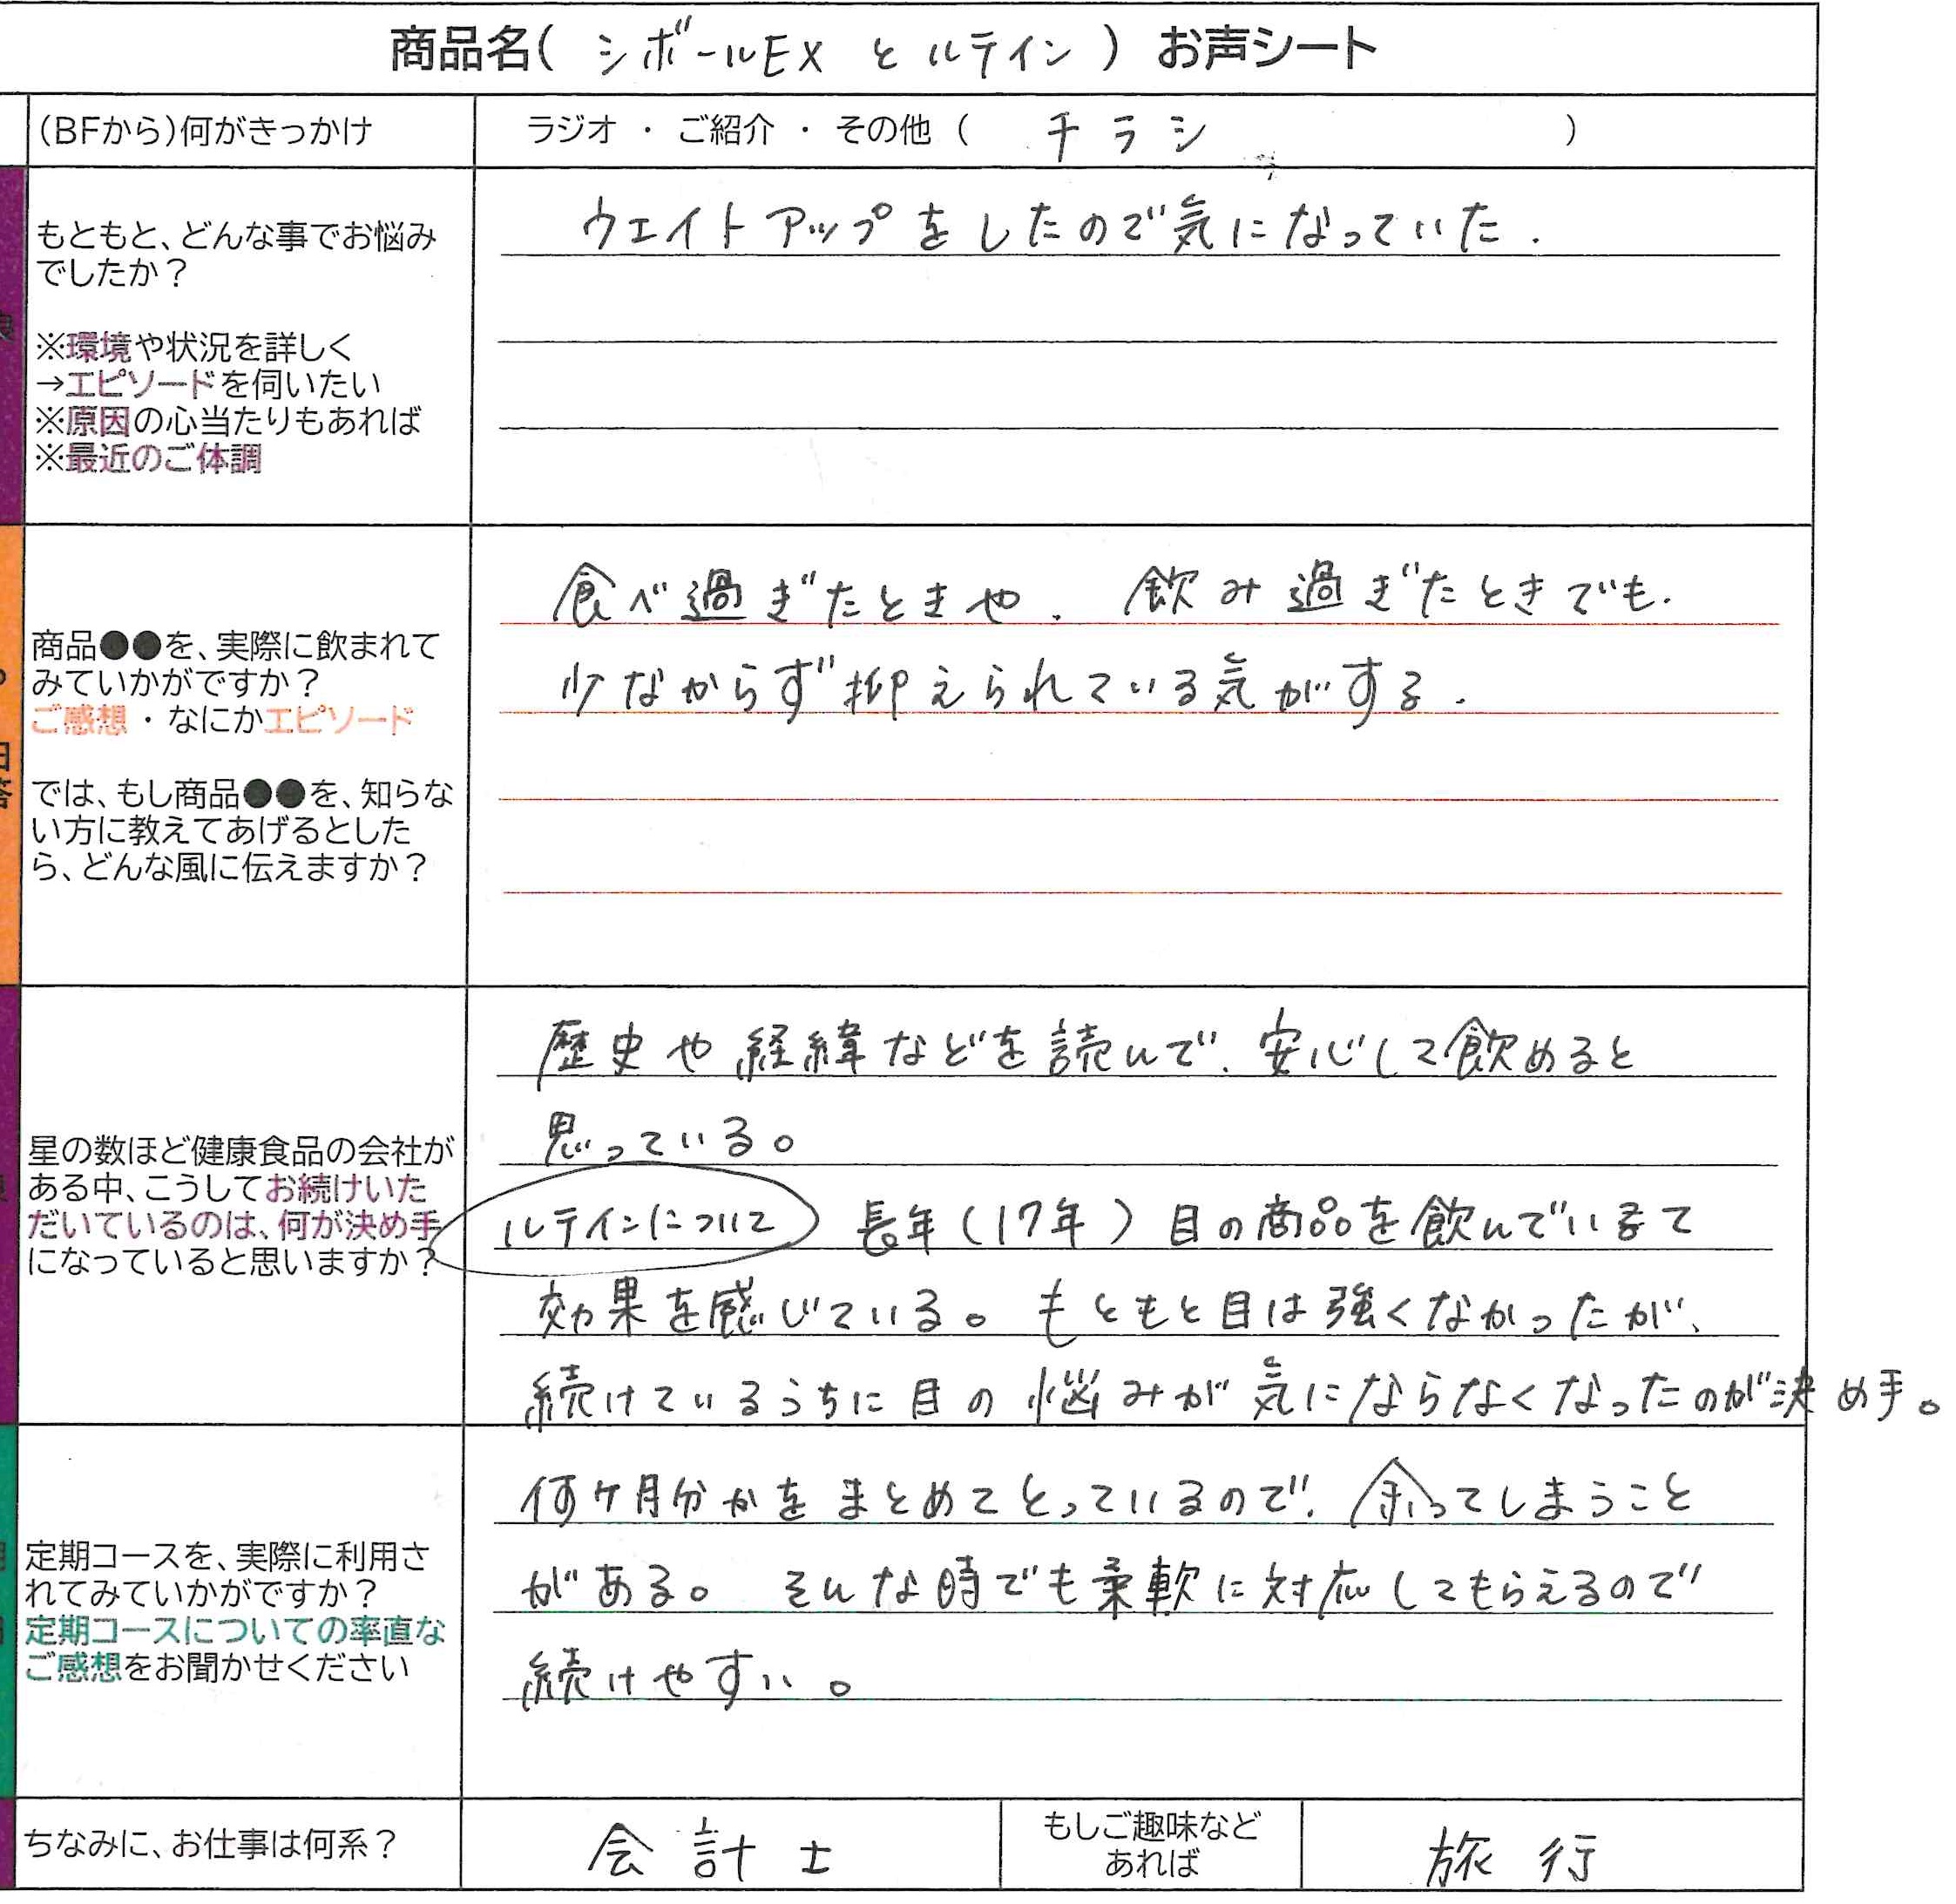 商品名( シボールEX と ルテイン ) お声シート
(BFから)何がきっかけ
ラジオ ・ ご紹介 ・ その他 ( チラシ )
もともと、どんな事でお悩み
でしたか？
※環境や状況を詳しく
→エピソードを伺いたい
※原因の心当たりもあれば
※最近のご体調
ウエイトアップをしたので気になっていた.
商品●●を、実際に飲まれて
みていかがですか？
ご感想・なにかエピソード
では、もし商品●●を、知らな
い方に教えてあげるとした
ら、どんな風に伝えますか？
食べ過ぎたときや、飲み過ぎたときでも、
少なからず抑えられている気がする.
星の数ほど健康食品の会社が
ある中、こうしてお続けいた
だいているのは、何が決め手
になっていると思いますか？
歴史や経緯などを読んで、安心して飲めると
思っている。
ルテインについて 長年(17年) 目の商品を飲んでいて
効果を感じている。もともと目は強くなかったが、
続けているうちに目の悩みが気にならなくなったのが決め手。
定期コースを、実際に利用さ
れてみていかがですか？
定期コースについての率直な
ご感想をお聞かせください
何ケ月分かをまとめてとっているので、余ってしまうこと
がある。そんな時でも柔軟に対応してもらえるので
続けやすい。
ちなみに、お仕事は何系？
会計士
もしご趣味など
あれば
旅行